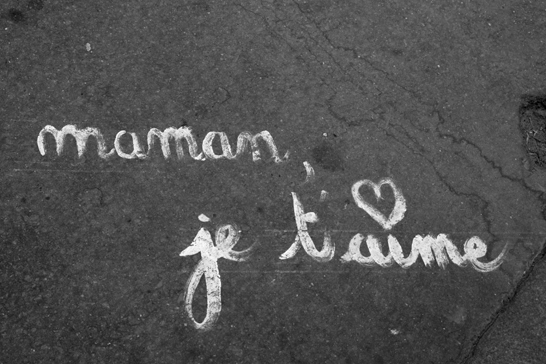 maman,
je t'aime